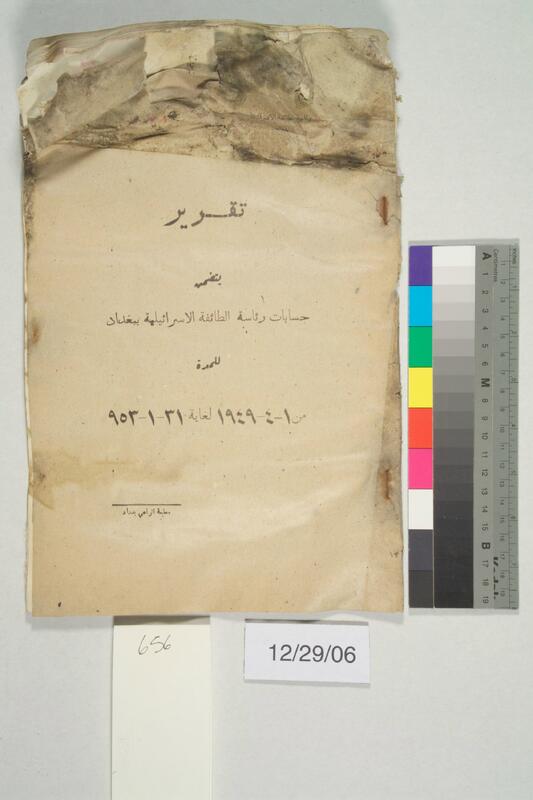 تقرير
يتضمن
حسابات رئاسة الطائفة الاسرائيلية ببغداد
للمدة
من ١-٤-١٩٤٩ لغاية ٣١-١-٩٥٣
بغداد
656
12/29/06
Inches
Centimetres
A 1 2 3 4 5 6 M 8 9 10 11 12 13 14 15 B 17 18 19